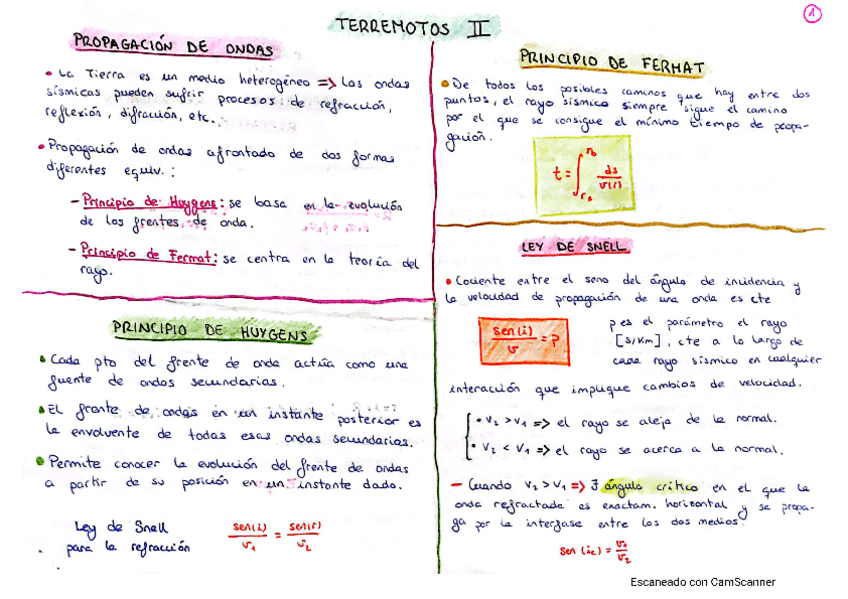 1
TERREMOTOS II
PROPAGACIÓN DE ONDAS
• La Tierra es un medio heterogéneo => Las ondas
sísmicas pueden sufrir procesos de refracción,
reflexión, difracción, etc.
• Propagación de ondas afrontado de dos formas
diferentes equiv.:
- Principio de Huygens: se basa en la evolución
de los frentes de onda.
- Principio de Fermat: se centra en la teoría del
rayo.
PRINCIPIO DE HUYGENS
• Cada pto del frente de onda actúa como una
fuente de ondas secundarias.
• El frente de ondas en un instante posterior es
la envolvente de todas esas ondas secundarias.
• Permite conocer la evolución del frente de ondas
a partir de su posición en un instante dado.
Ley de Snell
para la refracción
sen(i)/v₁ = sen(r)/v₂
PRINCIPIO DE FERMAT
• De todos los posibles caminos que hay entre dos
puntos, el rayo sísmico siempre sigue el camino
por el que se consigue el mínimo tiempo de propa-
gación.
t = ∫ rₐ r_b ds/v(r)
LEY DE SNELL
• Cociente entre el seno del ángulo de incidencia y
la velocidad de propagación de una onda es cte
sen(i)/v = P
p es el parámetro el rayo
[s/km], cte a lo largo de
cada rayo sísmico en cualquier
interacción que implique cambios de velocidad.
• v₂ > v₁ => el rayo se aleja de la normal.
• v₂ < v₁ => el rayo se acerca a la normal.
- Cuando v₂ > v₁ => ∃ ángulo crítico en el que la
onda refractada es exactam. horizontal y se propa-
ga por la interfase entre los dos medios.
sen(ic) = v₁/v₂
Escaneado con CamScanner